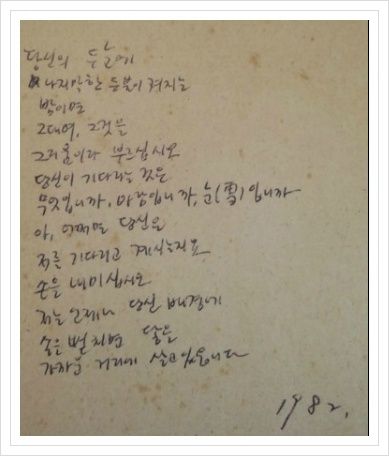 당신의 뜰에
나지막한 등불이 켜지는
밤이면
그대여, 그것을
그리움이라 부르십시오
당신이 기다리는 것은
무엇입니까, 바람입니까, 눈(雪)입니까
아, 어쩌면 당신은
저를 기다리고 계시는지요
손을 내미십시오
저는 언제나 당신 배경에
손을 뻗치면 닿을
가까운 거리에 살고 있읍니다
1982.